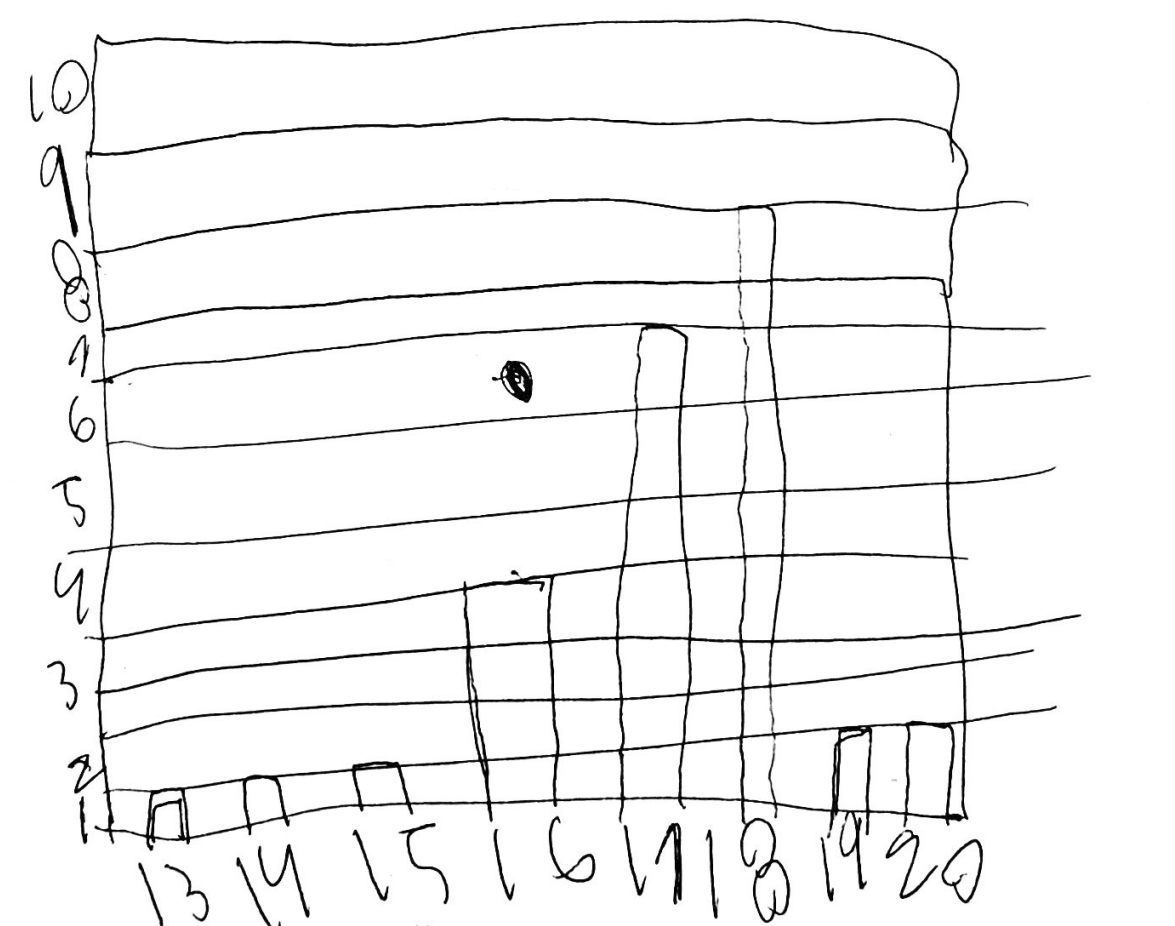 10
9
8
7
6
5
4
3
2
1
13 14 15 16 17 18 19 20